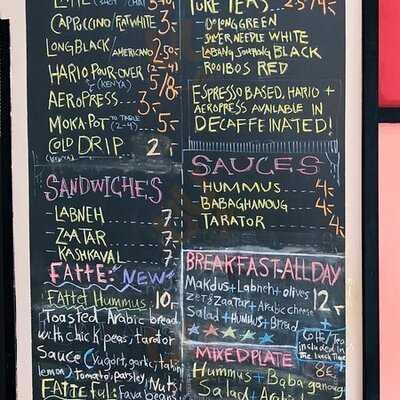 CAPPUCCINO/FATWHITE 3,-
LONGBLACK/AMERICANO 2,50,-
HARIO POUR-OVER (2-4)
(KENYA) 5/8,-
AEROPRESS... 3,-
MOKA-POT TO TABLE
(2-4) ... 5,-
COLD DRIP 2
SANDWICHE'S
-LABNEH ........ 7,-
-ZAATAR ........ 7,-
KASHKAVAL ...... 7
FATTE: NEW
Fatte Hummus: 10,-
Toasted Arabic bread
with chick peas, tarator
Sauce (yugort, garlic, tahini
lemon) tomato, parsley, Nuts!
FATTE ful: Fava beans
PURE TEAS ... 2.5/4,-
-OOLONG GREEN
-SILVER NEEDLE WHITE
SOUCHONG BLACK
-ROOIBOS RED
ESPRESSO BASED, HARIO +
AEROPRESS AVAILABLE IN
DECAFFEINATED!
SAUCES
-HUMMUS .... 4,-
-BABAGHANOUG. 4,-
-TARATOR ..... 4,-
BREAKFAST-ALLDAY
Makdus + Labneh + olives
zeit & zaatar + Arabic cheese 12,-
Salad + HUMMUS + Bread +
Coffe/Tea
included in
the lunch Time
MIXED PLATE 8€,-
Hummus + Baba ganoug
+ Salad + Arabic